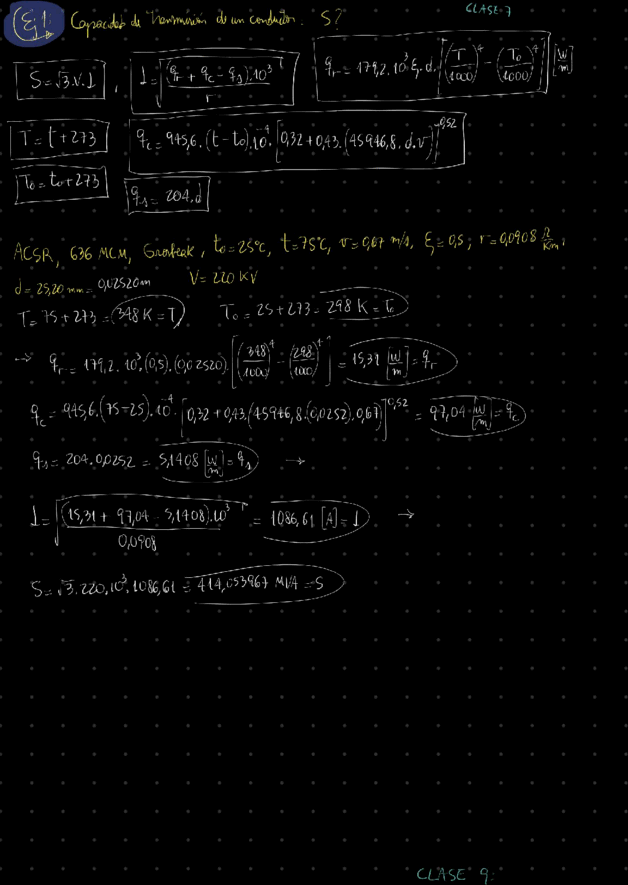 CLASE 7
Ej 1: Capacidad de transmisión de un conductor. S?
S = √3.V.I , I = √((qr + qc - qs).10³ / r) qr = 179,2.10³.ξ.d.[(T/1000)⁴ - (To/1000)⁴] [W/m]
T = t + 273 qc = 945,6.(t - to).10⁻⁴.[0,32 + 0,43.(45946,8.d.v)]^0,52
To = to + 273 qs = 204.d
ACSR, 636 MCM, Grosbeak, to = 25°C, t = 75°C, v = 0,67 m/s, ξ = 0,5; r = 0,0908 Ω/Km,
d = 25,20 mm = 0,02520 m V = 220 KV
T = 75 + 273 = 348 K = T To = 25 + 273 = 298 K = To
→ qr = 179,2.10³.(0,5).(0,02520).[(348/1000)⁴ - (298/1000)⁴] = 15,31 [W/m] = qr
qc = 945,6.(75-25).10⁻⁴.[0,32 + 0,43.(45946,8.(0,0252).0,67)]^0,52 = 97,04 [W/m] = qc
qs = 204.0,0252 = 5,1408 [W/m] = qs →
I = √((15,31 + 97,04 - 5,1408).10³ / 0,0908) = 1086,61 [A] = I →
S = √3.220.10³.1086,61 = 414,053967 MVA = S
CLASE 9: